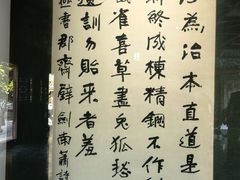 為治本直道是
終成棟精鋼不作
雀喜草盡兔狐愁
遺訓勿貽來者羞
書郡齋壁劍南蕭